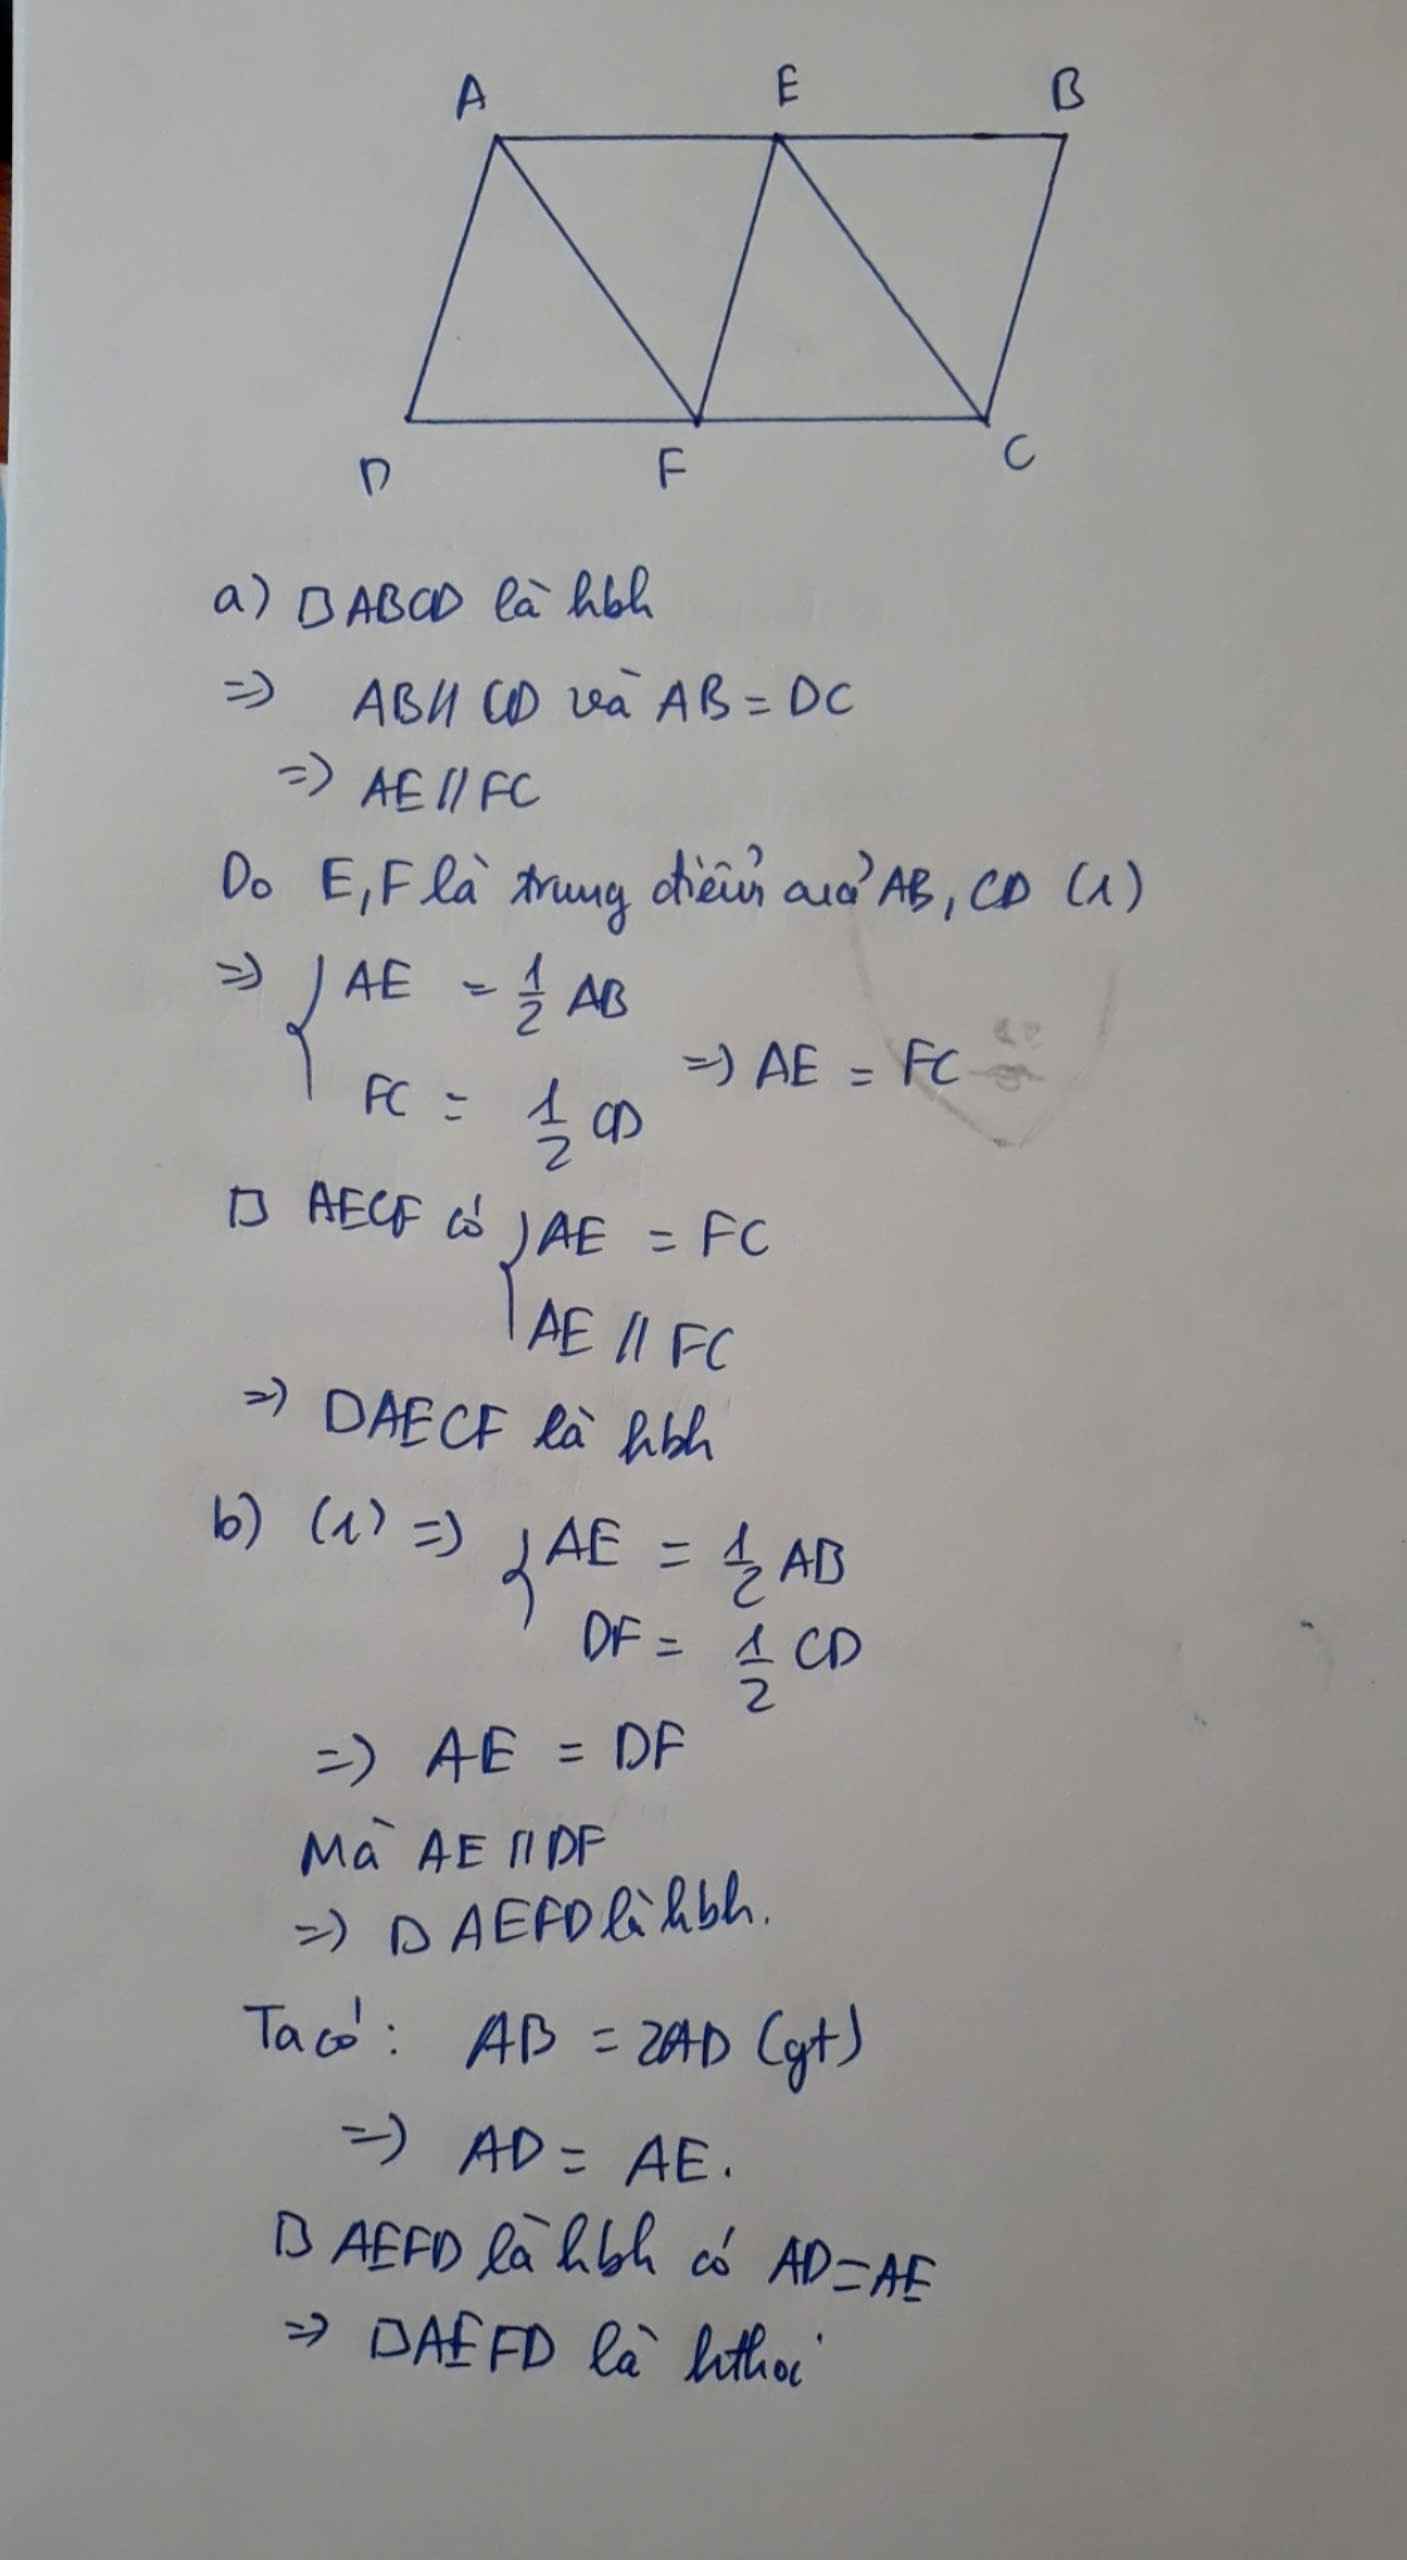 A E B
D F C
a) □ ABCD là hbh
=> AB // CD và AB = DC
=> AE // FC
Do E, F là trung điểm của AB, CD (1)
=> { AE = 1/2 AB
FC = 1/2 CD => AE = FC
□ AECF có { AE = FC
AE // FC
=> □AECF là hbh
b) (1) => { AE = 1/2 AB
DF = 1/2 CD
=> AE = DF
Mà AE // DF
=> □ AEFD là hbh.
Ta có: AB = 2AD (gt)
=> AD = AE.
□ AEFD là hbh có AD = AE
=> □AEFD là hthoi